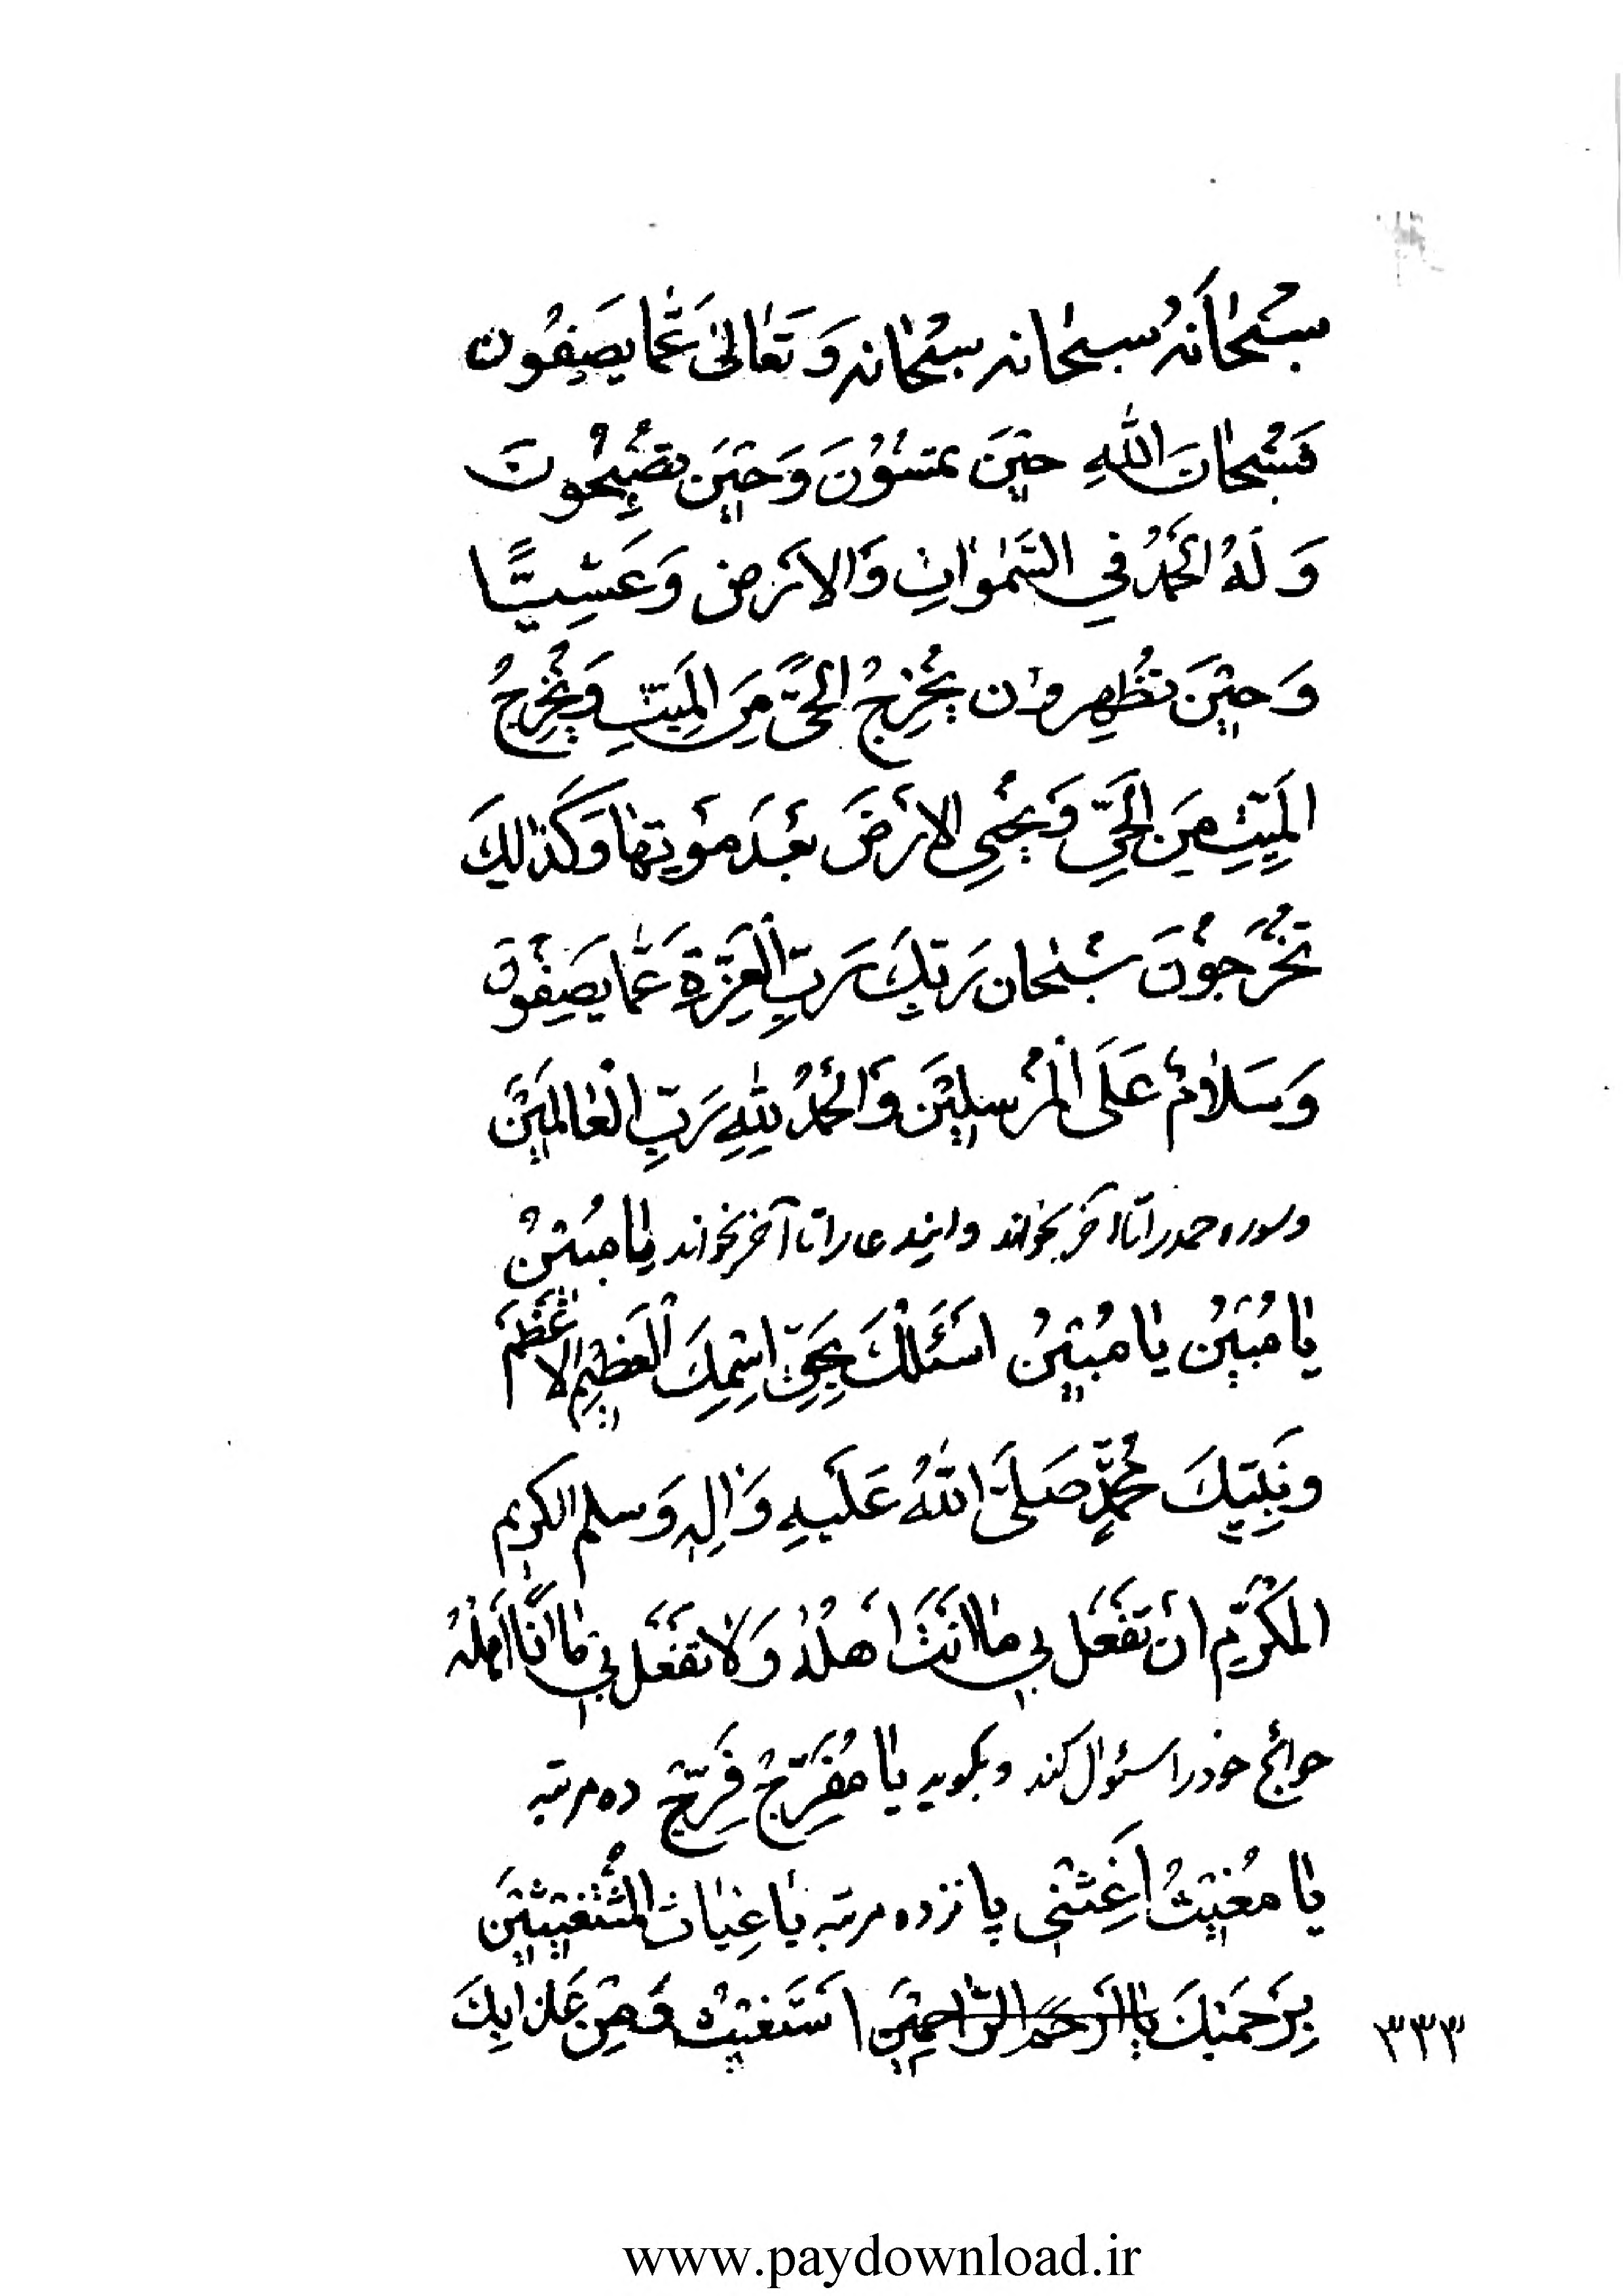 سُبْحٰانَهُ سبحٰانه سبحٰانه وَ تَعٰالیٰ عَمّٰا یصَفِوُن
فَسُبْحٰانَ اللّٰهِ حیٖنَ تمسْوُنَ وَ حیٖنَ تصْبِحُونَ
وَ لَهُ الْحَمْدُ فيِ السَّمٰوٰاتِ وَ الْاَرْضِ وَ عَشِیًّا
وَ حیٖنَ تُظْهِروُن یُخْرِجُ الْحَیَّ مِنَ الْمَیِّتِ وَ یُخْرِجُ
الْمَیِّتِ مِنَ الْحَیِّ وَ یُحْیِی الْاَرْضَ بَعْدَ مَوْتِهٰا وَ کَذٰلِكَ
تُخْرَجُوُنَ سُبْحٰان رَبِّكَ رَبِّ الْعِزَّةِ عَمّٰا یَصِفُونَ
وَ سَلٰامٌ عَلَی الْمُرْسَلیٖنَ وَ الْحَمْدُ لِلّٰهِ رَبِّ الْعٰالَمیٖنَ
و سوره حمد را تا آخر بخواند و ایندعا را تا آخر بخواند یٰا مُبیٖنُ
یٰا مُبیٖنُ یٰا مُبیٖنُ اَسْئَلُكَ بِحَقِّ اِسْمِكَ الْعَظیٖمِ الْاَعْظَمَ
وَ نَبِیِّكَ مُحَمَّدٍ صَلَّی اللّٰهُ عَلَیهِ وَ اٰلِهِ وَ سلم الکریم
الْمُکَرَّمِ اَنْ تَفْعَل بیٖ مٰا اَنْتَ اَهْلُهُ وَ لٰا تَفْعَل بیٖ مٰا اَنَا اَهْلُهُ
حوائج خود را سئوال کند و بگوید یٰا مُفَرِّجُ فَرِّجْ ده مرتبه
یٰا مُغیٖثُ اَغِثْنیٖ پانزده مرتبه یٰا غِیٰاثَ الْمُسْتَغیٖثیٖنَ
بِرَحْمَتِكَ یٰا اَرْحَمَ الرّٰاحِمیٖنَ اَسْتَغیٖثُ وَ مِنْ عَذٰابِكَ
۳۳۳
www.paydownload.ir